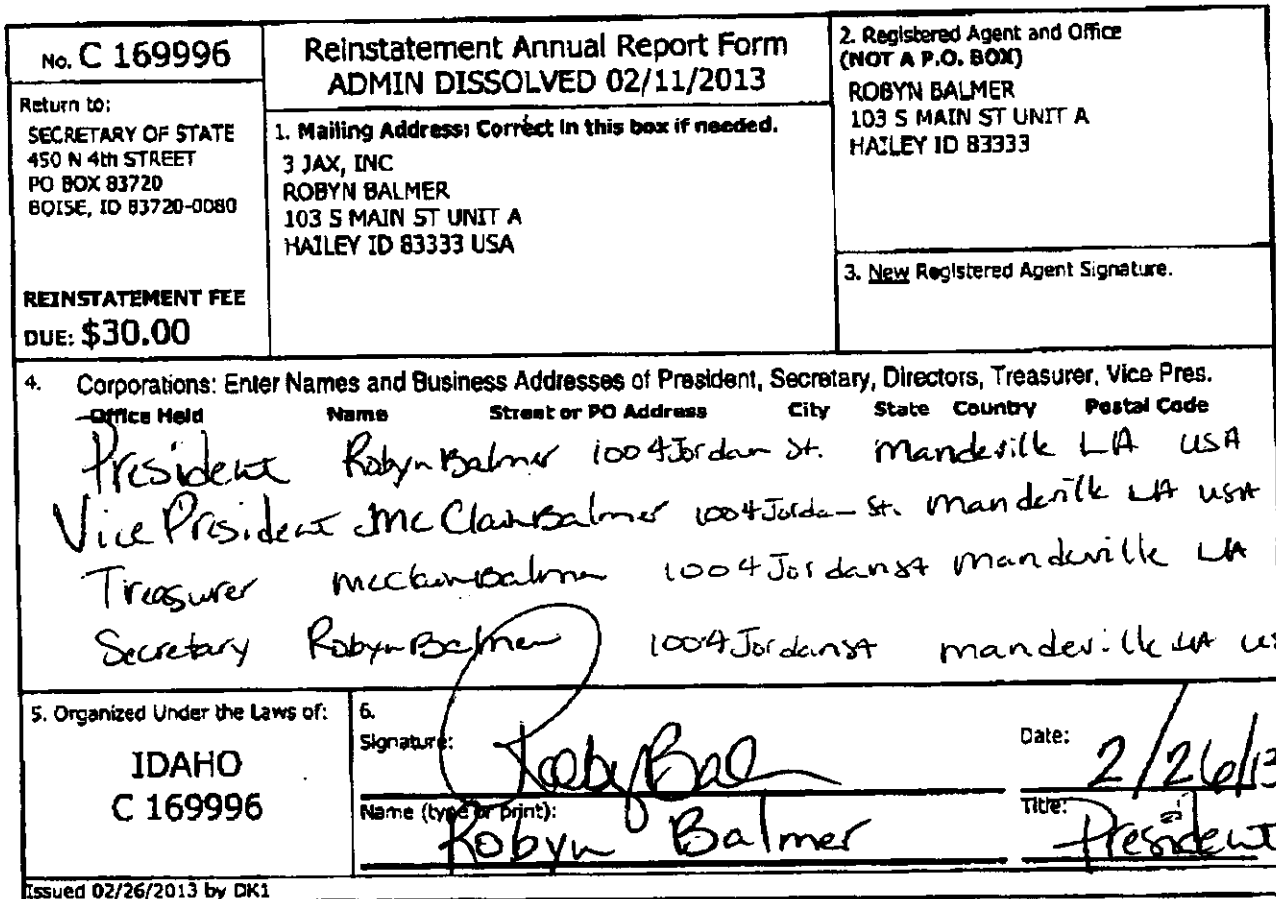 No. C 169996
Return to:
SECRETARY OF STATE
450 N 4th STREET
PO BOX 83720
BOISE, ID 83720-0080
REINSTATEMENT FEE
DUE: $30.00
Reinstatement Annual Report Form
ADMIN DISSOLVED 02/11/2013
1. Mailing Address: Correct in this box if needed.
3 JAX, INC
ROBYN BALMER
103 S MAIN ST UNIT A
HAILEY ID 83333 USA
2. Registered Agent and Office
(NOT A P.O. BOX)
ROBYN BALMER
103 S MAIN ST UNIT A
HAILEY ID 83333
3. New Registered Agent Signature.
4. Corporations: Enter Names and Business Addresses of President, Secretary, Directors, Treasurer, Vice Pres.
Office Held Name Street or PO Address City State Country Postal Code
President Robyn Balmer 1004 Jordan St. Mandeville LA USA
Vice President McClain Balmer 1004 Jordan St. Mandeville LA USA
Treasurer McClain Balmer 1004 Jordan St Mandeville LA
Secretary Robyn Balmer 1004 Jordan St mandeville LA us
5. Organized Under the Laws of:
IDAHO
C 169996
6.
Signature: Date: 2/26/13
Name (type or print): Title:
Robyn Balmer President
Issued 02/26/2013 by DK1